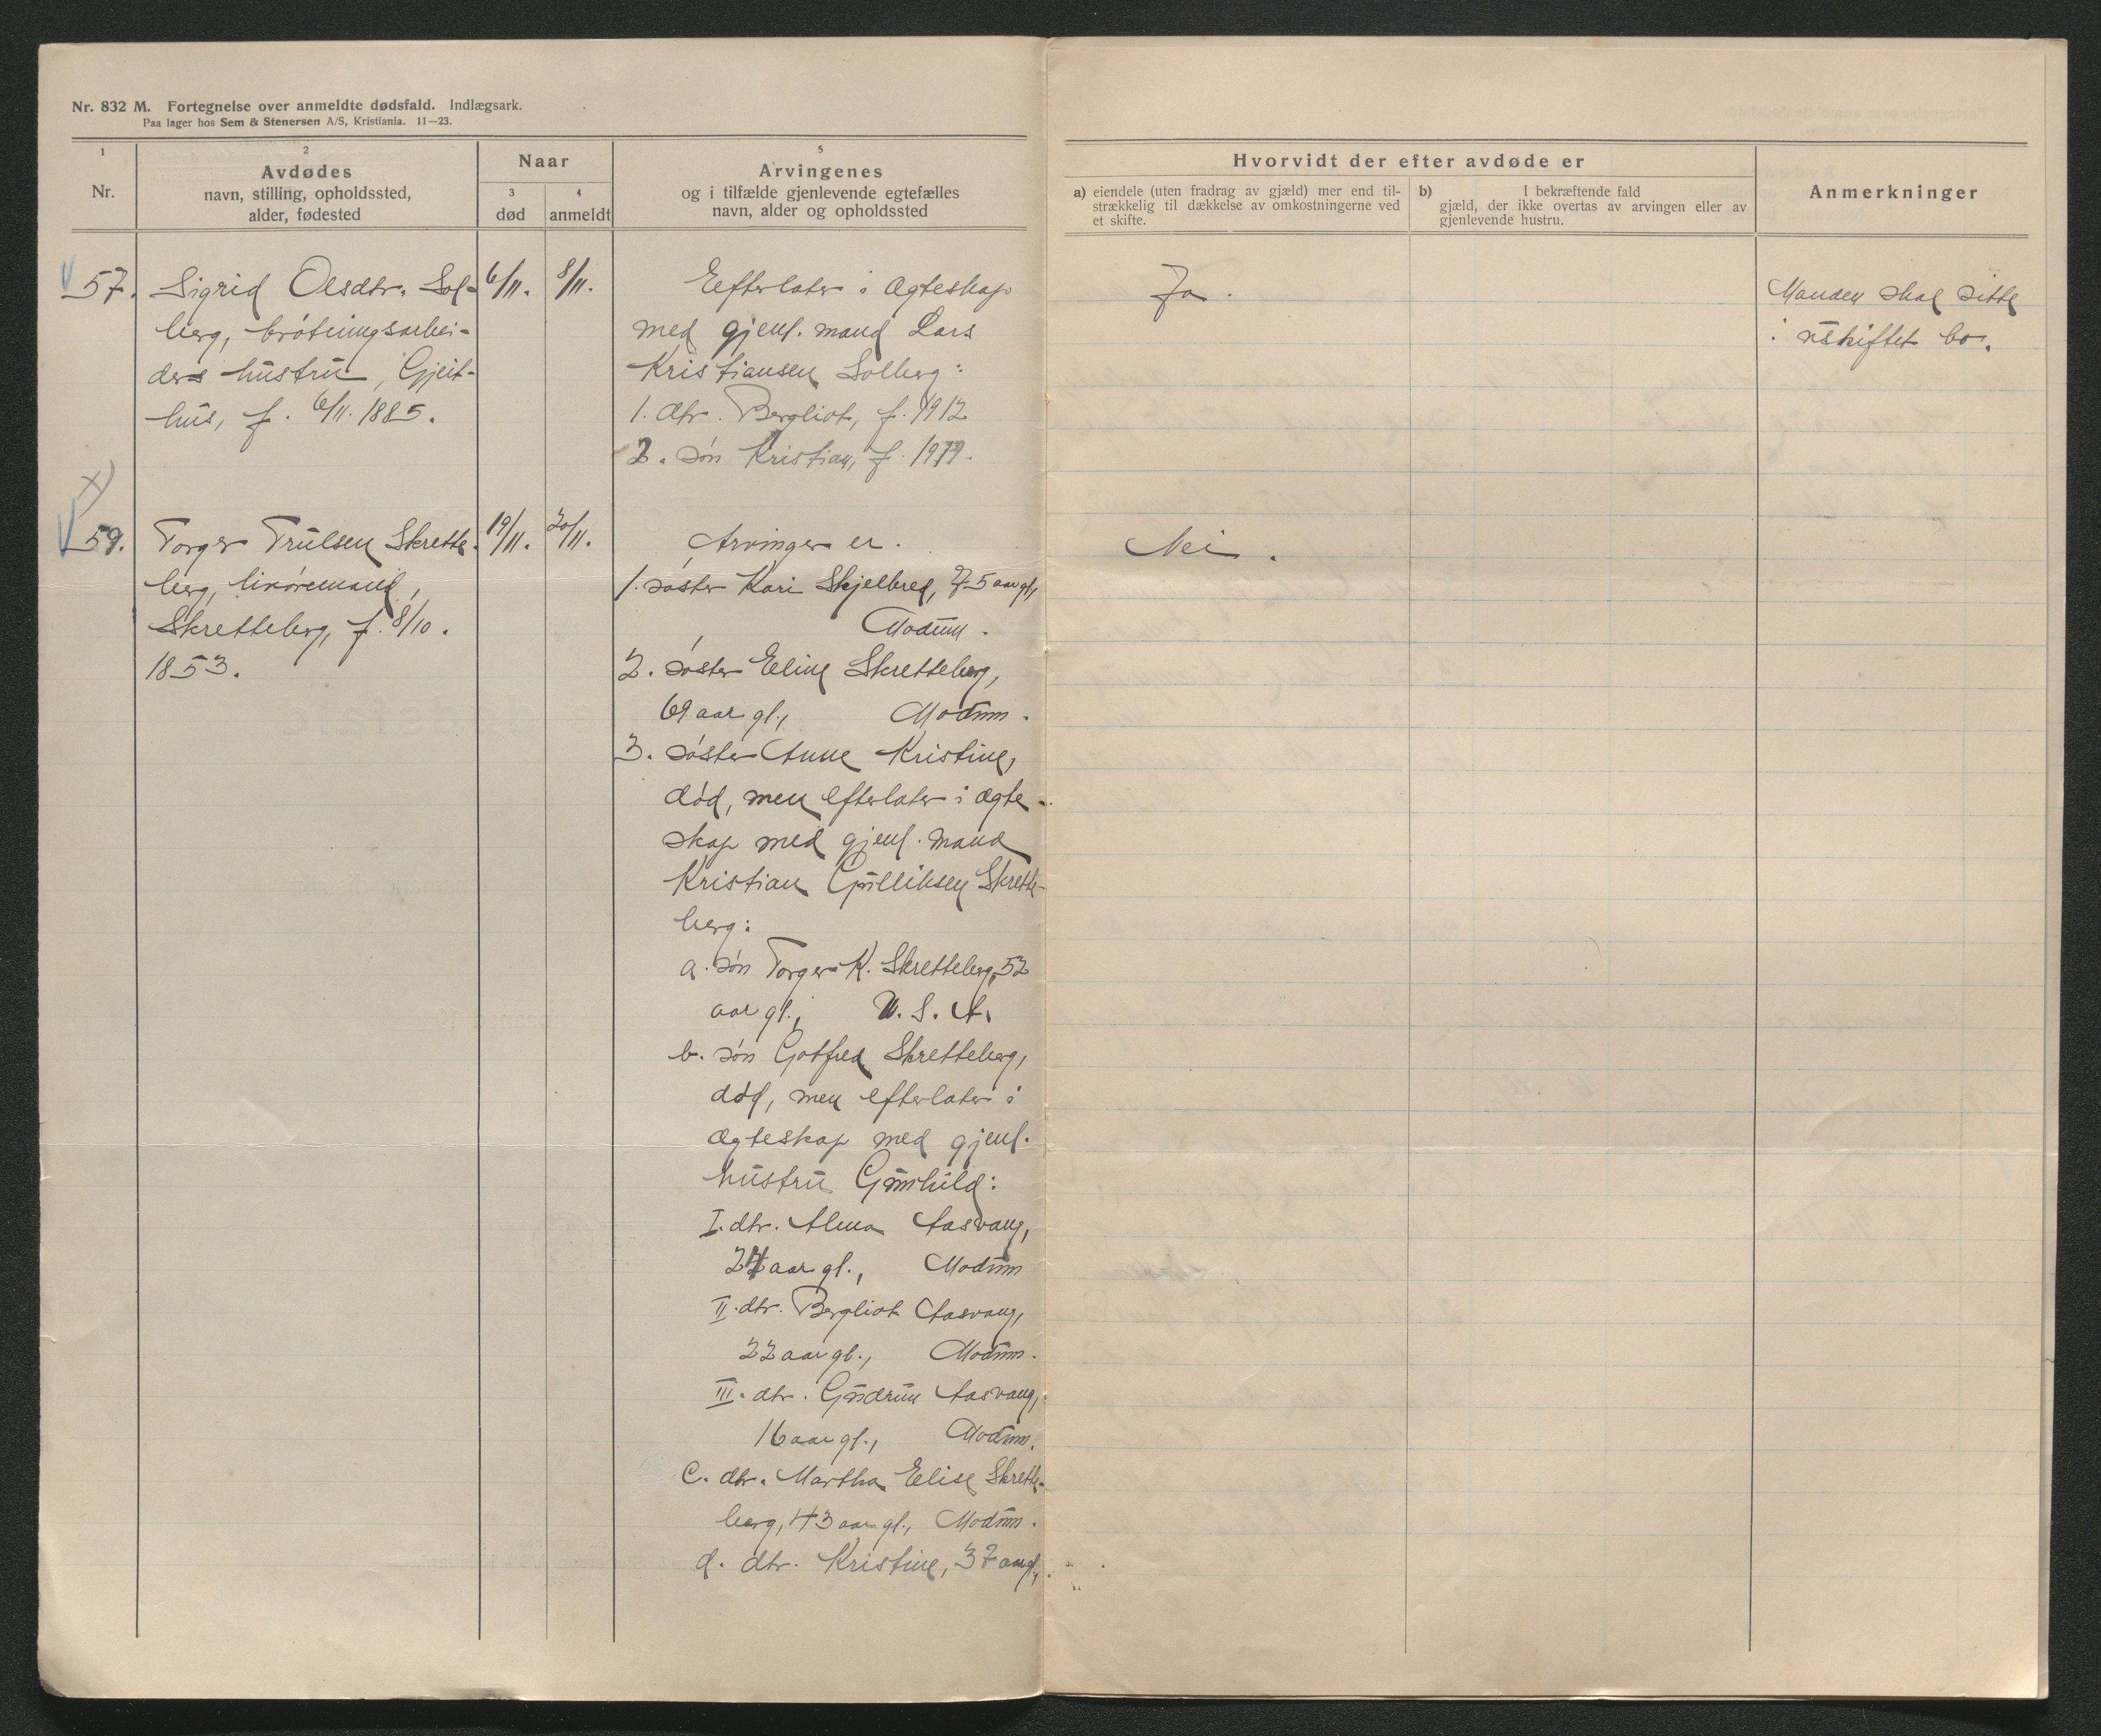 Nr. 832 M. Fortegnelse over anmeldte dødsfald. Indlægsark.
Paa lager hos Sem & Stenersen A/S, Kristiania. 11—23.
1
Nr.
2
Avdødes
navn, stilling, opholdssted,
alder, fødested
Naar
3
død
4
anmeldt
5
Arvingenes
og i tilfælde gjenlevende egtefælles
navn, alder og opholdssted
Hvorvidt der efter avdøde er
a) eiendele (uten fradrag av gjæld) mer end til-
strækkelig til dækkelse av omkostningerne ved
et skifte.
b) I bekræftende fald
gjæld, der ikke overtas av arvingen eller av
gjenlevende hustru.
Anmerkninger
57.
Sigrid Olsdtr. Sol-
berg, brøtningsarbei-
ders hustru, Gjeit-
hus, f. 6/11. 1885.
6/11.
8/11.
Efterlater i ægteskap
med gjenl. mand Lars
Kristiansen Solberg:
1. dtr. Bergliot, f. 1912
2. søn Kristian, f. 1919.
Ja.
Manden skal sitte
i uskiftet bo.
x)
59.
Torger Trulsen Skrette-
berg,
Skretteberg, f. 8/10.
1853.
19/11.
20/11.
Arvinger er.
1. søster Kari Skjelbred, 75 aar gl.,
Modum.
2. søster Eline Skretteberg,
69 aar gl., Modum.
3. søster Anne Kristine,
død, men efterlater i ægte-
skap med gjenl. mand
Kristian Gulliksen Skrette-
berg:
a. søn Torger K. Skretteberg, 52
aar gl., U. S. A.
b. søn Gotfred Skretteberg,
død, men efterlater i
ægteskap med gjenl.
hustru Gunhild:
I. dtr. Alma Aasvang,
aar gl., Modum
II. dtr. Bergliot Aasvang,
22 aar gl., Modum.
III. dtr. Gudrun Aasvang,
16 aar gl., Modum.
c. dtr. Martha Elise Skrette-
berg, 43 aar gl., Modum.
d. dtr. Kristine, 37 aar gl.,
Nei.